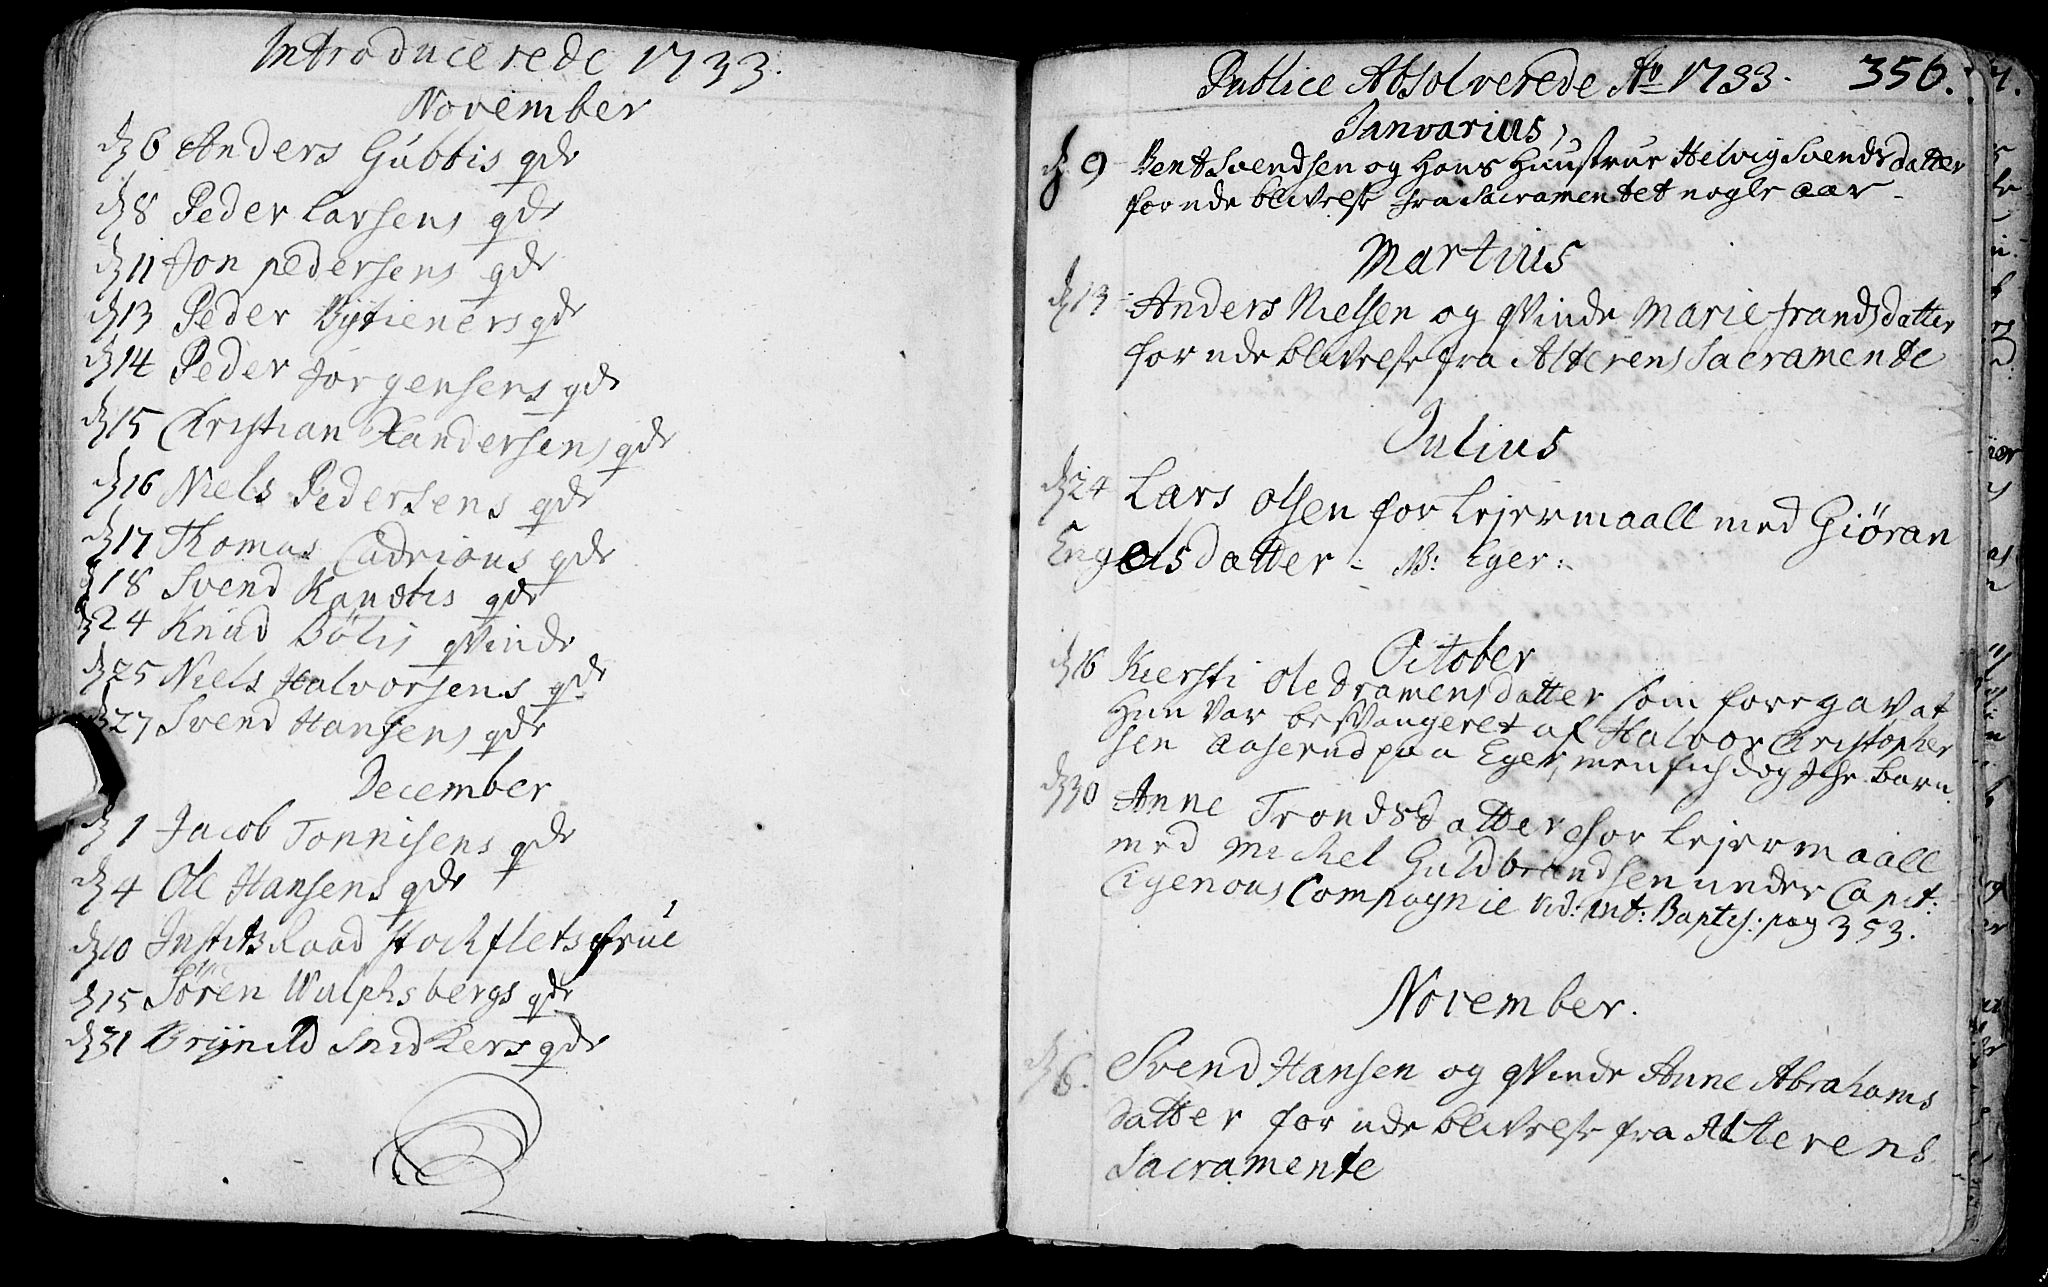 Introducerede 1733.
November
d 6 Anders Gubbis qde
d 8 Peder Larsens qde
d 11 Jon pedersens qde
d 13 Peder Bytieners qde
d 14 Peder Jorgensens qde
d 15 Christian Xandersens qde
d 16 Niels Pedersens qde
d 17 Thomas Cadrious qde
d 18 Svend qde
d 24 Knud Bölis qvinde
d 25 Niels Halvorsens qde
d 27 Svend Hansens qde
December
d 1 Jacob Tonnisens qde
d 4 Ole Hansens qde
d 10 Justits Raad Stockflets frue
d 15 Sören Wulphsbergs qde
d 31 Brynild Snidkers qde
Publice Absolverede Ao 1733. 356.
Janvarius,
d 9 Bent Svendsen og Hans Huustrue Helvig Svendsdatter
for udeblivelse fra Sacramentet nogle aar
Martius
d 13 Anders Nielsen og qvinde Marie frandsdatter
for udeblivelse fra Alterens Sacramente
Julius
d 24 Lars Olsen for Lejermaall med Giöran
Engelsdatter - NB: Eger:
October
d 16 Kiersti Ole Dramensdatter som foregav at
Hun var besvangeret af Halvor Christopher
sen Aaserud paa Eger, men fich dog Iche barn.
d 30 Anne Trondsdatter for Lejermaall
med Michel Guldbrandsen under Capit:
Cigenous Compagnie vid: int: Baptis: pag 353.
November.
d 6. Svend Hansen og qvinde Anne Abrahams
datter for udeblivelse fra Alterens
Sacramente